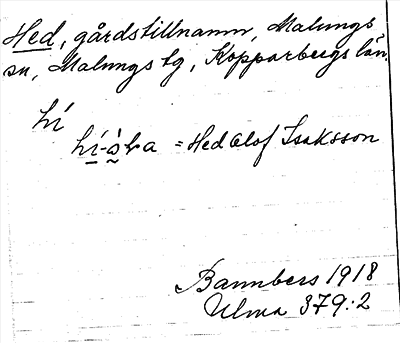 Hed, gårdstillnamn, Malungs
sn, Malungs tg, Kopparbergs län.
hí
hí-òra = Hed Olof Isaksson
Bannbers 1918
Ulma 379:2